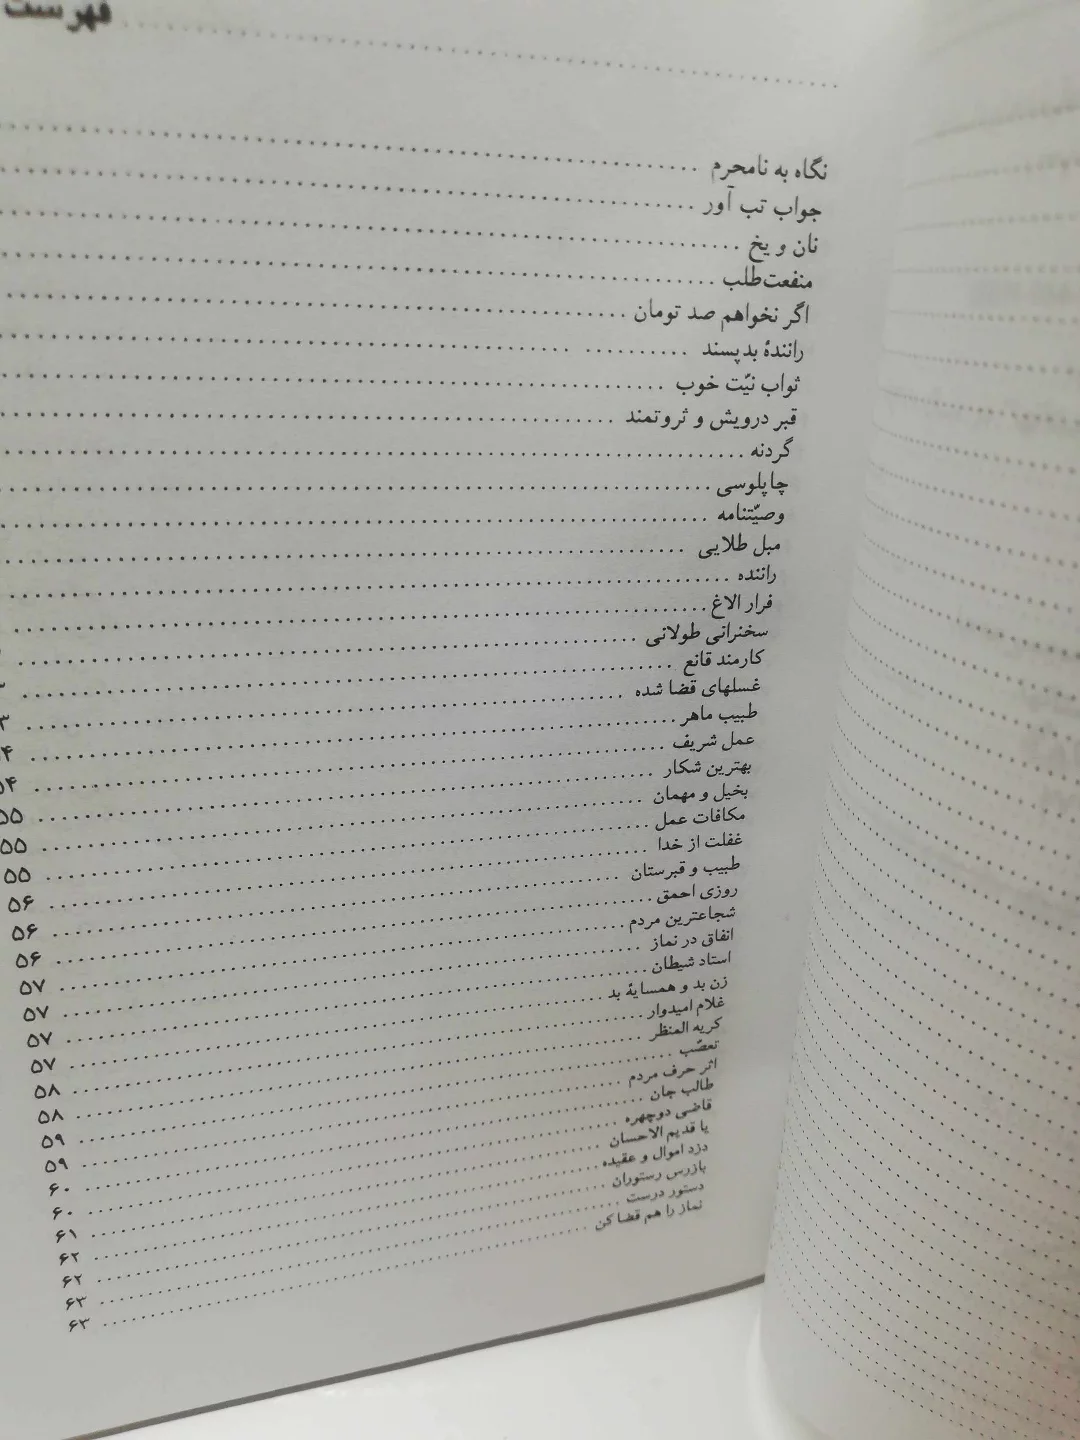 فهرست
نگاه به نامحرم
جواب تب آور
نان و یخ
منفعت‌طلب
اگر نخواهم صد تومان
رانندهٔ بدپسند
ثواب نیّت خوب
قبر درویش و ثروتمند
گردنه
چاپلوسی
وصیّتنامه
مبل طلایی
راننده
فرار الاغ
سخنرانی طولانی
کارمند قانع
غسلهای قضا شده
طبیب ماهر
عمل شریف
بهترین شکار
بخیل و مهمان
مکافات عمل
غفلت از خدا
طبیب و قبرستان
روزی احمق
شجاعترین مردم
انفاق در نماز
استاد شیطان
زن بد و همسایهٔ بد
غلام امیدوار
کریه المنظر
تعصّب
اثر حرف مردم
طالب جان
قاضی دوچهره
یا قدیم الاحسان
دزد اموال و عقیده ۶۲
بازرس رستوران ۶۲
دستور درست ۶۳
نماز را هم قضا کن ۶۳